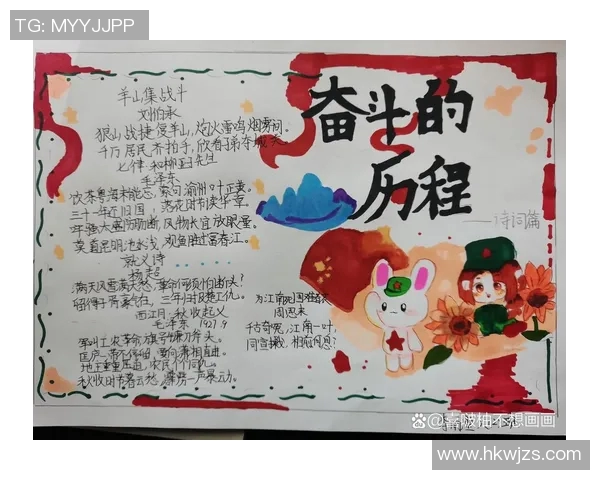 TG: MYYJJPP
奋斗的
历程
——诗词篇
羊山集战斗
刘伯承
狼山战捷复羊山,炮火雷鸣烟雾间。
千万居民齐拍手,欣看子弟夺城关。
七律·和柳亚子先生
毛泽东
饮茶粤海未能忘,索句渝州叶正黄。
三十一年还旧国,落花时节读华章。
牢骚太盛防肠断,风物长宜放眼量。
莫道昆明池水浅,观鱼胜过富春江。
就义诗
杨超
满天风雪满天愁,革命何须怕断头?
留得子胥豪气在,三年归报楚王仇。
西江月·秋收起义
毛泽东 1927.9
军叫工农革命,旗号镰刀斧头。
匡庐一带不停留,要向潇湘直进。
地主重重压迫,农民个个同仇。
秋收时节暮云愁,霹雳一声暴动。
为江南死国难者志哀
周恩来
千古奇冤,江南一叶,
同室操戈,相煎何急!
@喜啵柚不想画画
www.hkwjzs.com